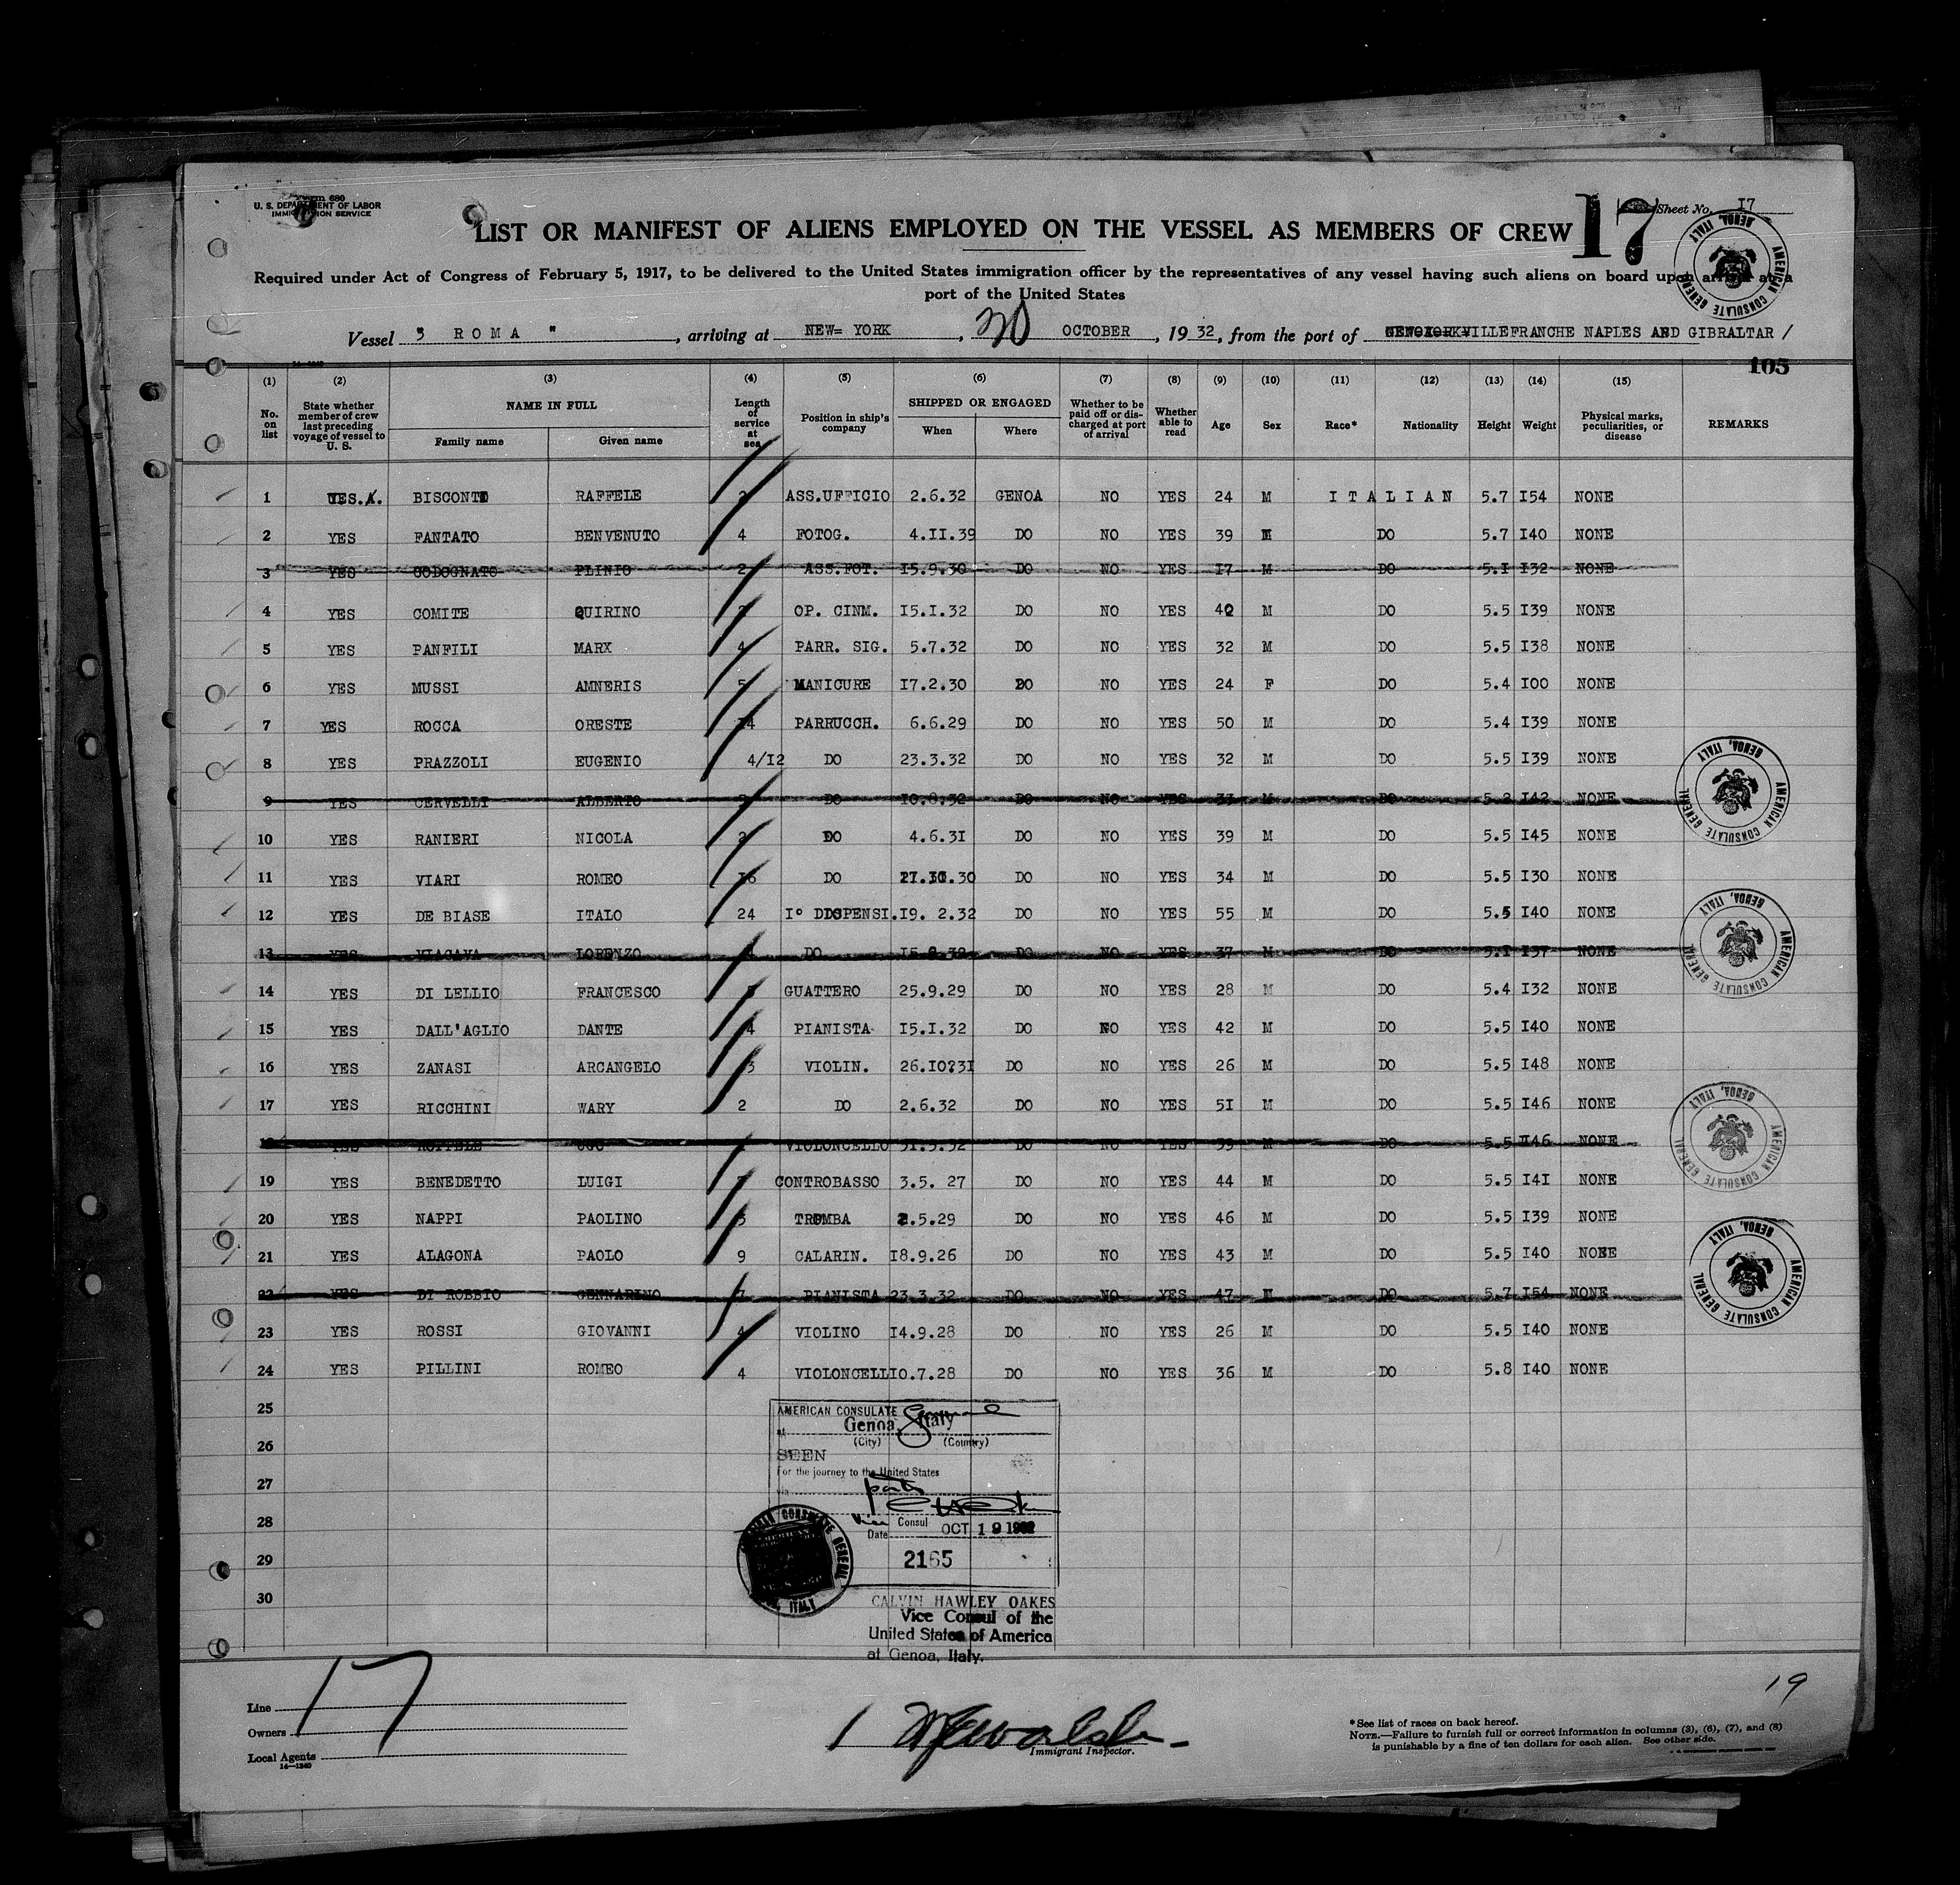 Form 680
U. S. DEPARTMENT OF LABOR
IMMIGRATION SERVICE
LIST OR MANIFEST OF ALIENS EMPLOYED ON THE VESSEL AS MEMBERS OF CREW 17 Sheet No. I7
Required under Act of Congress of February 5, 1917, to be delivered to the United States immigration officer by the representatives of any vessel having such aliens on board upon arrival at a
port of the United States
Vessel " ROMA ", arriving at NEW= YORK, 20 OCTOBER, 1932, from the port of VILLEFRANCHE NAPLES AND GIBRALTAR /
105
(1) (2) (3) (4) (5) (6) (7) (8) (9) (10) (11) (12) (13) (14) (15)
No. on list State whether member of crew last preceding voyage of vessel to U. S. NAME IN FULL Family name Given name Length of service at sea Position in ship's company SHIPPED OR ENGAGED When Where Whether to be paid off or discharged at port of arrival Whether able to read Age Sex Race* Nationality Height Weight Physical marks, peculiarities, or disease REMARKS
1 YES. BISCONTI RAFFELE ASS.UFFICIO 2.6.32 GENOA NO YES 24 M ITALIAN 5.7 I54 NONE
2 YES FANTATO BENVENUTO 4 FOTOG. 4.II.39 DO NO YES 39 M DO 5.7 I40 NONE
3 YES CODOGNATO PLINIO 2 ASS.FOT. I5.9.30 DO NO YES I7 M DO 5.I I32 NONE
4 YES COMITE QUIRINO OP. CINM. I5.I.32 DO NO YES 40 M DO 5.5 I39 NONE
5 YES PANFILI MARX 4 PARR. SIG. 5.7.32 DO NO YES 32 M DO 5.5 I38 NONE
6 YES MUSSI AMNERIS 5 MANICURE I7.2.30 DO NO YES 24 F DO 5.4 I00 NONE
7 YES ROCCA ORESTE I4 PARRUCCH. 6.6.29 DO NO YES 50 M DO 5.4 I39 NONE
8 YES PRAZZOLI EUGENIO 4/I2 DO 23.3.32 DO NO YES 32 M DO 5.5 I39 NONE
9 YES CERVELLI ALBERTO DO I0.8.32 DO NO YES 33 M DO 5.2 I42 NONE
10 YES RANIERI NICOLA 2 DO 4.6.3I DO NO YES 39 M DO 5.5 I45 NONE
11 YES VIARI ROMEO I6 DO DO NO YES 34 M DO 5.5 I30 NONE
12 YES DE BIASE ITALO 24 I° DISPENSI. I9. 2.32 DO NO YES 55 M DO 5.5 I40 NONE
13 YES VIACAVA LORENZO DO I5.8.32 DO NO YES 37 M DO 5.I I37 NONE
14 YES DI LELLIO FRANCESCO GUATTERO 25.9.29 DO NO YES 28 M DO 5.4 I32 NONE
15 YES DALL'AGLIO DANTE 4 PIANISTA I5.I.32 DO NO YES 42 M DO 5.5 I40 NONE
16 YES ZANASI ARCANGELO 3 VIOLIN. 26.I0?3I DO NO YES 26 M DO 5.5 I48 NONE
17 YES RICCHINI WARY 2 DO 2.6.32 DO NO YES 5I M DO 5.5 I46 NONE
18 YES UGO VIOLONCELLO 31.3.32 DO NO YES 39 M DO 5.5 I46 NONE
19 YES BENEDETTO LUIGI CONTROBASSO 3.5. 27 DO NO YES 44 M DO 5.5 I4I NONE
20 YES NAPPI PAOLINO TROMBA 2.5.29 DO NO YES 46 M DO 5.5 I39 NONE
21 YES ALAGONA PAOLO 9 CALARIN. I8.9.26 DO NO YES 43 M DO 5.5 I40 NONE
22 YES DI ROBBIO GENNARINO 7 PIANISTA 23.3.32 DO NO YES 47 M DO 5.7 I54 NONE
23 YES ROSSI GIOVANNI 4 VIOLINO I4.9.28 DO NO YES 26 M DO 5.5 I40 NONE
24 YES PILLINI ROMEO 4 VIOLONCELLI0.7.28 DO NO YES 36 M DO 5.8 I40 NONE
25
26
27
28
29
30
AMERICAN CONSULATE General
at Genoa, Italy
(City) (Country)
SEEN
For the journey to the United States
via ports
Vice Consul
Date OCT 19 1932
2165
CALVIN HAWLEY OAKES
Vice Consul of the
United States of America
at Genoa, Italy.
AMERICAN CONSULATE GENERAL GENOA, ITALY
AMERICAN CONSULATE GENERAL GENOA, ITALY
AMERICAN CONSULATE GENERAL GENOA, ITALY
AMERICAN CONSULATE GENERAL GENOA, ITALY
AMERICAN CONSULATE GENERAL GENOA, ITALY
17
19
Line
Owners
Local Agents
14—1240
Walsh
Immigrant Inspector.
*See list of races on back hereof.
NOTE.—Failure to furnish full or correct information in columns (3), (6), (7), and (8)
is punishable by a fine of ten dollars for each alien. See other side.